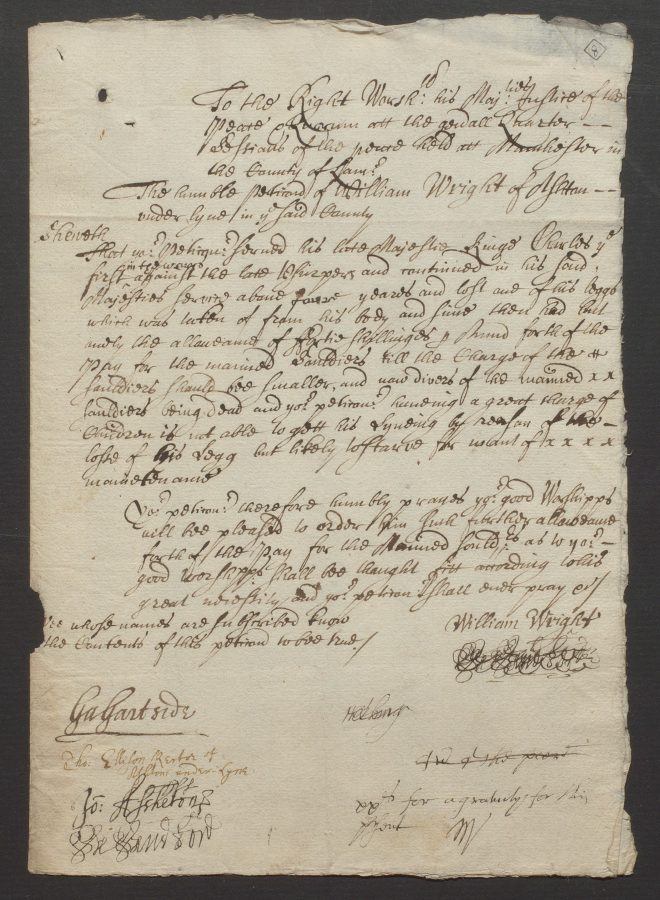 To the Right Worsh:ll his Maj:ties Justice of the
Peace & Quorum att the genall Quarter
Sessions of the peace held att Manchester in
the County of Lanc:
The humble Peticon of William Wright of Ashton
under lyne in ye said County
Sheweth
That yor: Peticonr: served his late Majestie Kinge Charles ye
in the warrs
first against the late Usurpers and continued in his said
Majesties service above foure yeares and lost one of his leggs
which was taken of from his body and since then had but
onely the allowance of fortie shillinges p Annd forth of the
Pay for the maimed souldiers till the Charge of the
souldiers should bee smaller, and now divers of the maimed x x
souldiers being dead and yor: peticonr: haveing a great charge of
Children is not able to gett his Liveing by reason of the
losse of his Legg but likely to starve for want of x x x x
maintename
Yor: peticonr: therefore humbly prayes yor: good Worshipps
will bee pleased to order him such further allowance
forth of the Pay for the Maimed souldrs as to yor:
good worshipps shall bee thought fitt according to his
great necessity and yor: peticonr: shall ever pray &c/
Wee whose names are subscribed know
the Contents of this peticon to bee true/
William Wright
Ga Gartside
Tho: Ellison Rector of
Ashton under Lyne
Jo: Asheton
of the peace
for a gratuity for